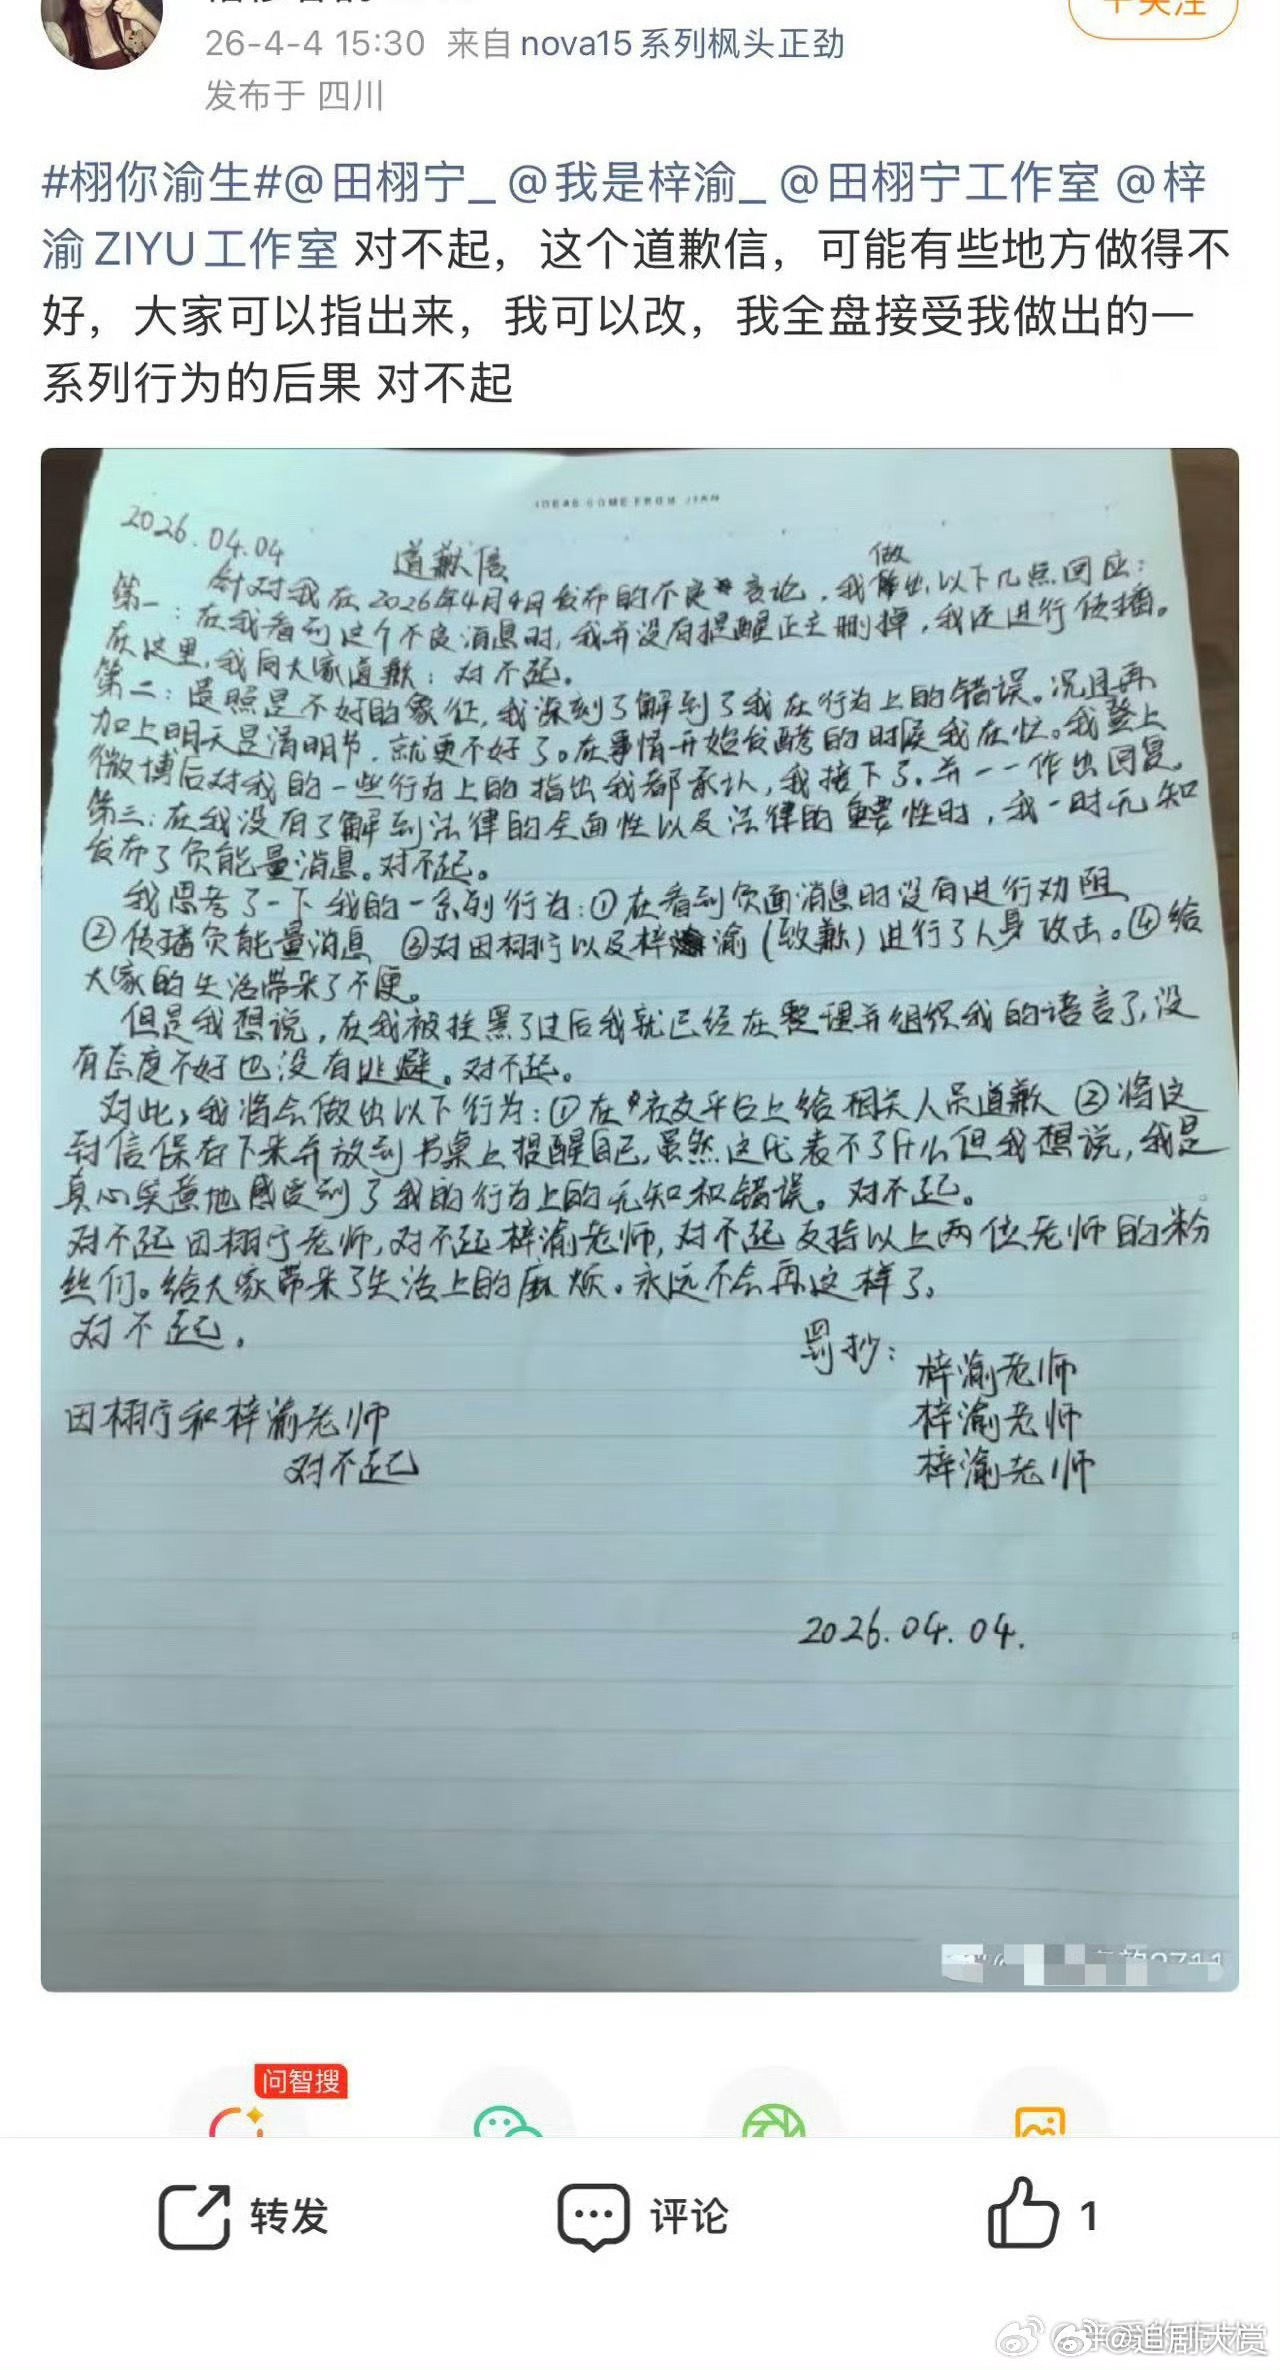 26-4-4 15:30 来自 nova15系列枫头正劲
发布于 四川
#栩你渝生#@田栩宁_ @我是梓渝_ @田栩宁工作室 @梓
渝ZIYU工作室 对不起，这个道歉信，可能有些地方做得不
好，大家可以指出来，我可以改，我全盘接受我做出的一
系列行为的后果 对不起
IDEAS COME FROM JIAN
2026.04.04
道歉信
针对我在2026年4月4日发布的不良言论，我做出以下几点回应：
第一：在我看到这个不良消息时，我并没有提醒正主删掉，我还进行传播。
在这里，我向大家道歉：对不起。
第二：遗照是不好的象征，我深刻了解到了我在行为上的错误。况且再
加上明天是清明节，就更不好了。在事情开始发酵的时候我在忙。我登上
微博后对我的一些行为上的指出我都承认，我接下了，并一一作出回复。
第三：在我没有了解到法律的全面性以及法律的重要性时，我一时无知
发布了负能量消息。对不起。
我思考了一下我的一系列行为：①在看到负面消息时没有进行劝阻
②传播负能量消息 ③对田栩宁以及梓渝（致歉）进行了人身攻击。④给
大家的生活带来了不便。
但是我想说，在我被挂黑了过后我就已经在整理并组织我的语言了，没
有态度不好也没有逃避。对不起。
对此，我将会做出以下行为：①在社交平台上给相关人员道歉 ②将这
封信保存下来并放到书桌上提醒自己，虽然这代表不了什么但我想说，我是
真心实意地感受到了我的行为上的无知和错误。对不起。
对不起田栩宁老师，对不起梓渝老师，对不起支持以上两位老师的粉
丝们。给大家带来了生活上的麻烦。永远不会再这样了。
对不起。
罚抄：
梓渝老师
梓渝老师
梓渝老师
田栩宁和梓渝老师
对不起
2026.04.04.
问智搜
转发
评论
1
@追剧大赏